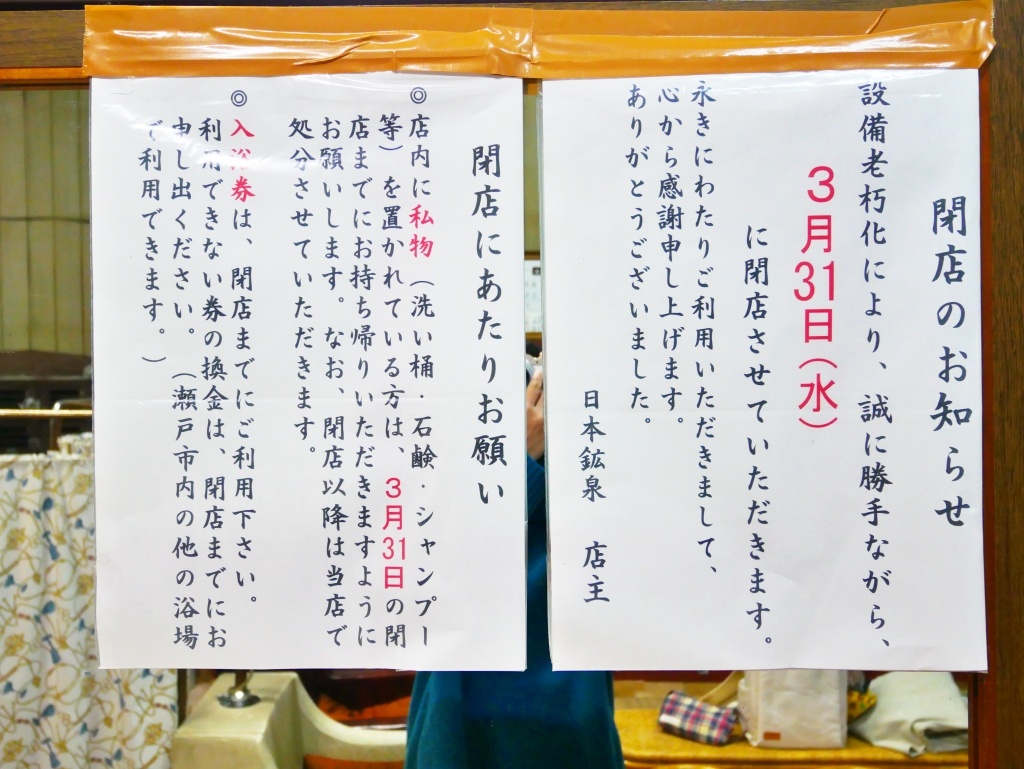 閉店のお知らせ
設備老朽化により、誠に勝手ながら、
3月31日(水)
に閉店させていただきます。
永きにわたりご利用いただきまして、
心から感謝申し上げます。
ありがとうございました。
日本鉱泉 店主
閉店にあたりお願い
◎店内に私物(洗い桶・石鹸・シャンプー
等)を置かれている方は、3月31日の閉
店までにお持ち帰りいただきますように
お願いします。なお、閉店以降は当店で
処分させていただきます。
◎入浴券は、閉店までにご利用下さい。
利用できない券の換金は、閉店までにお
申し出ください。(瀬戸市内の他の浴場
で利用できます。)